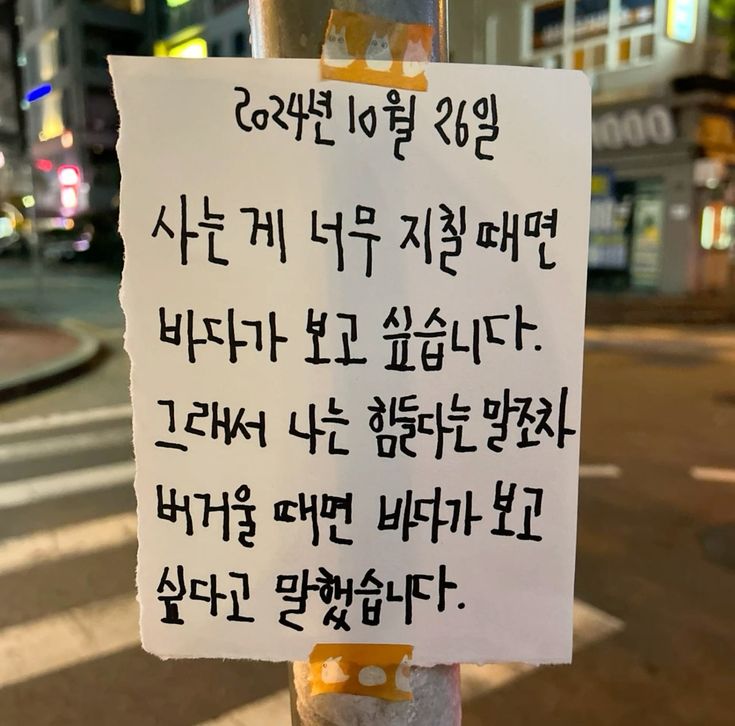 2024년 10월 26일
사는 게 너무 지칠 때면
바다가 보고 싶습니다.
그래서 나는 힘들다는 말조차
버거울 때면 바다가 보고
싶다고 말했습니다.
000